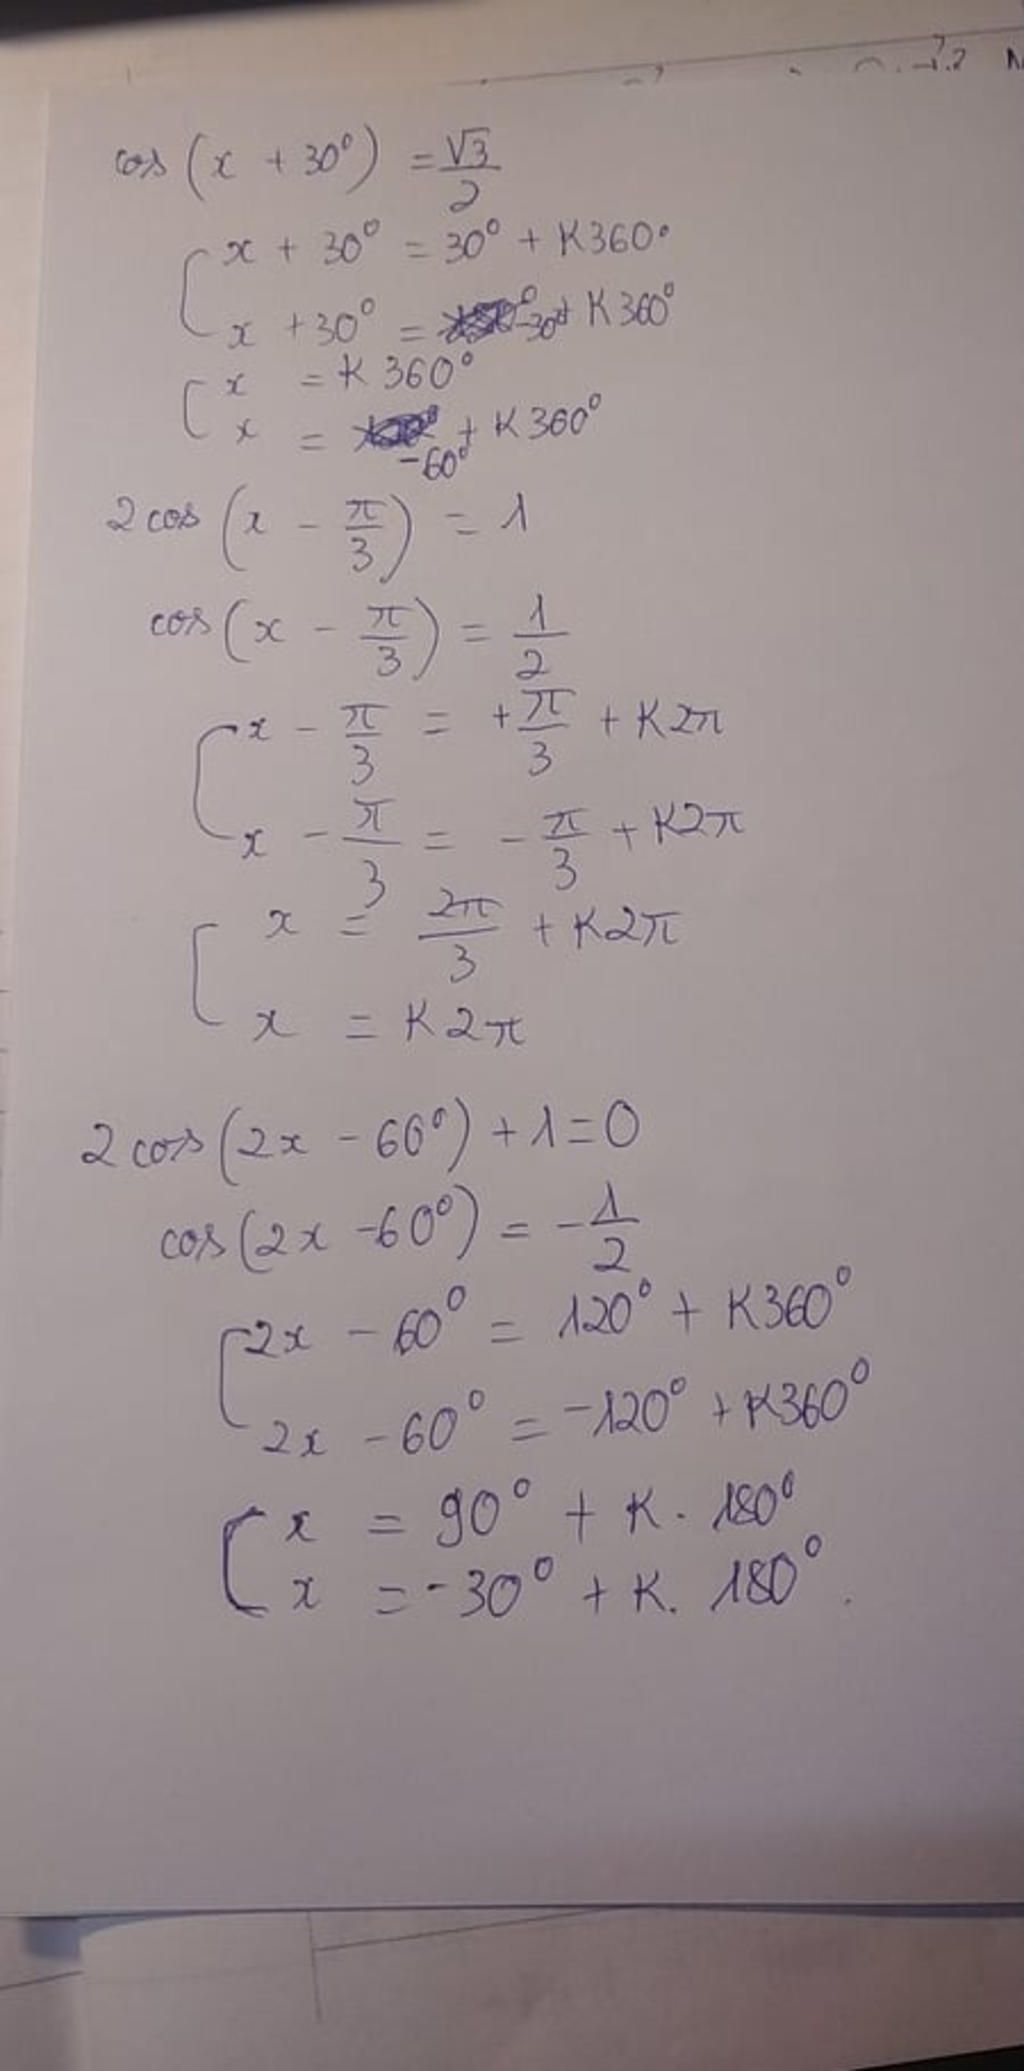 cos (x + 30°) = √3/2
[ x + 30° = 30° + K360°
x + 30° = -30° + K360°
[ x = K360°
x = -60° + K360°
2cos (x - π/3) = 1
cos (x - π/3) = 1/2
[ x - π/3 = +π/3 + K2π
x - π/3 = -π/3 + K2π
[ x = 2π/3 + K2π
x = K2π
2cos (2x - 60°) + 1 = 0
cos (2x - 60°) = -1/2
[ 2x - 60° = 120° + K360°
2x - 60° = -120° + K360°
[ x = 90° + K. 180°
x = -30° + K. 180°.